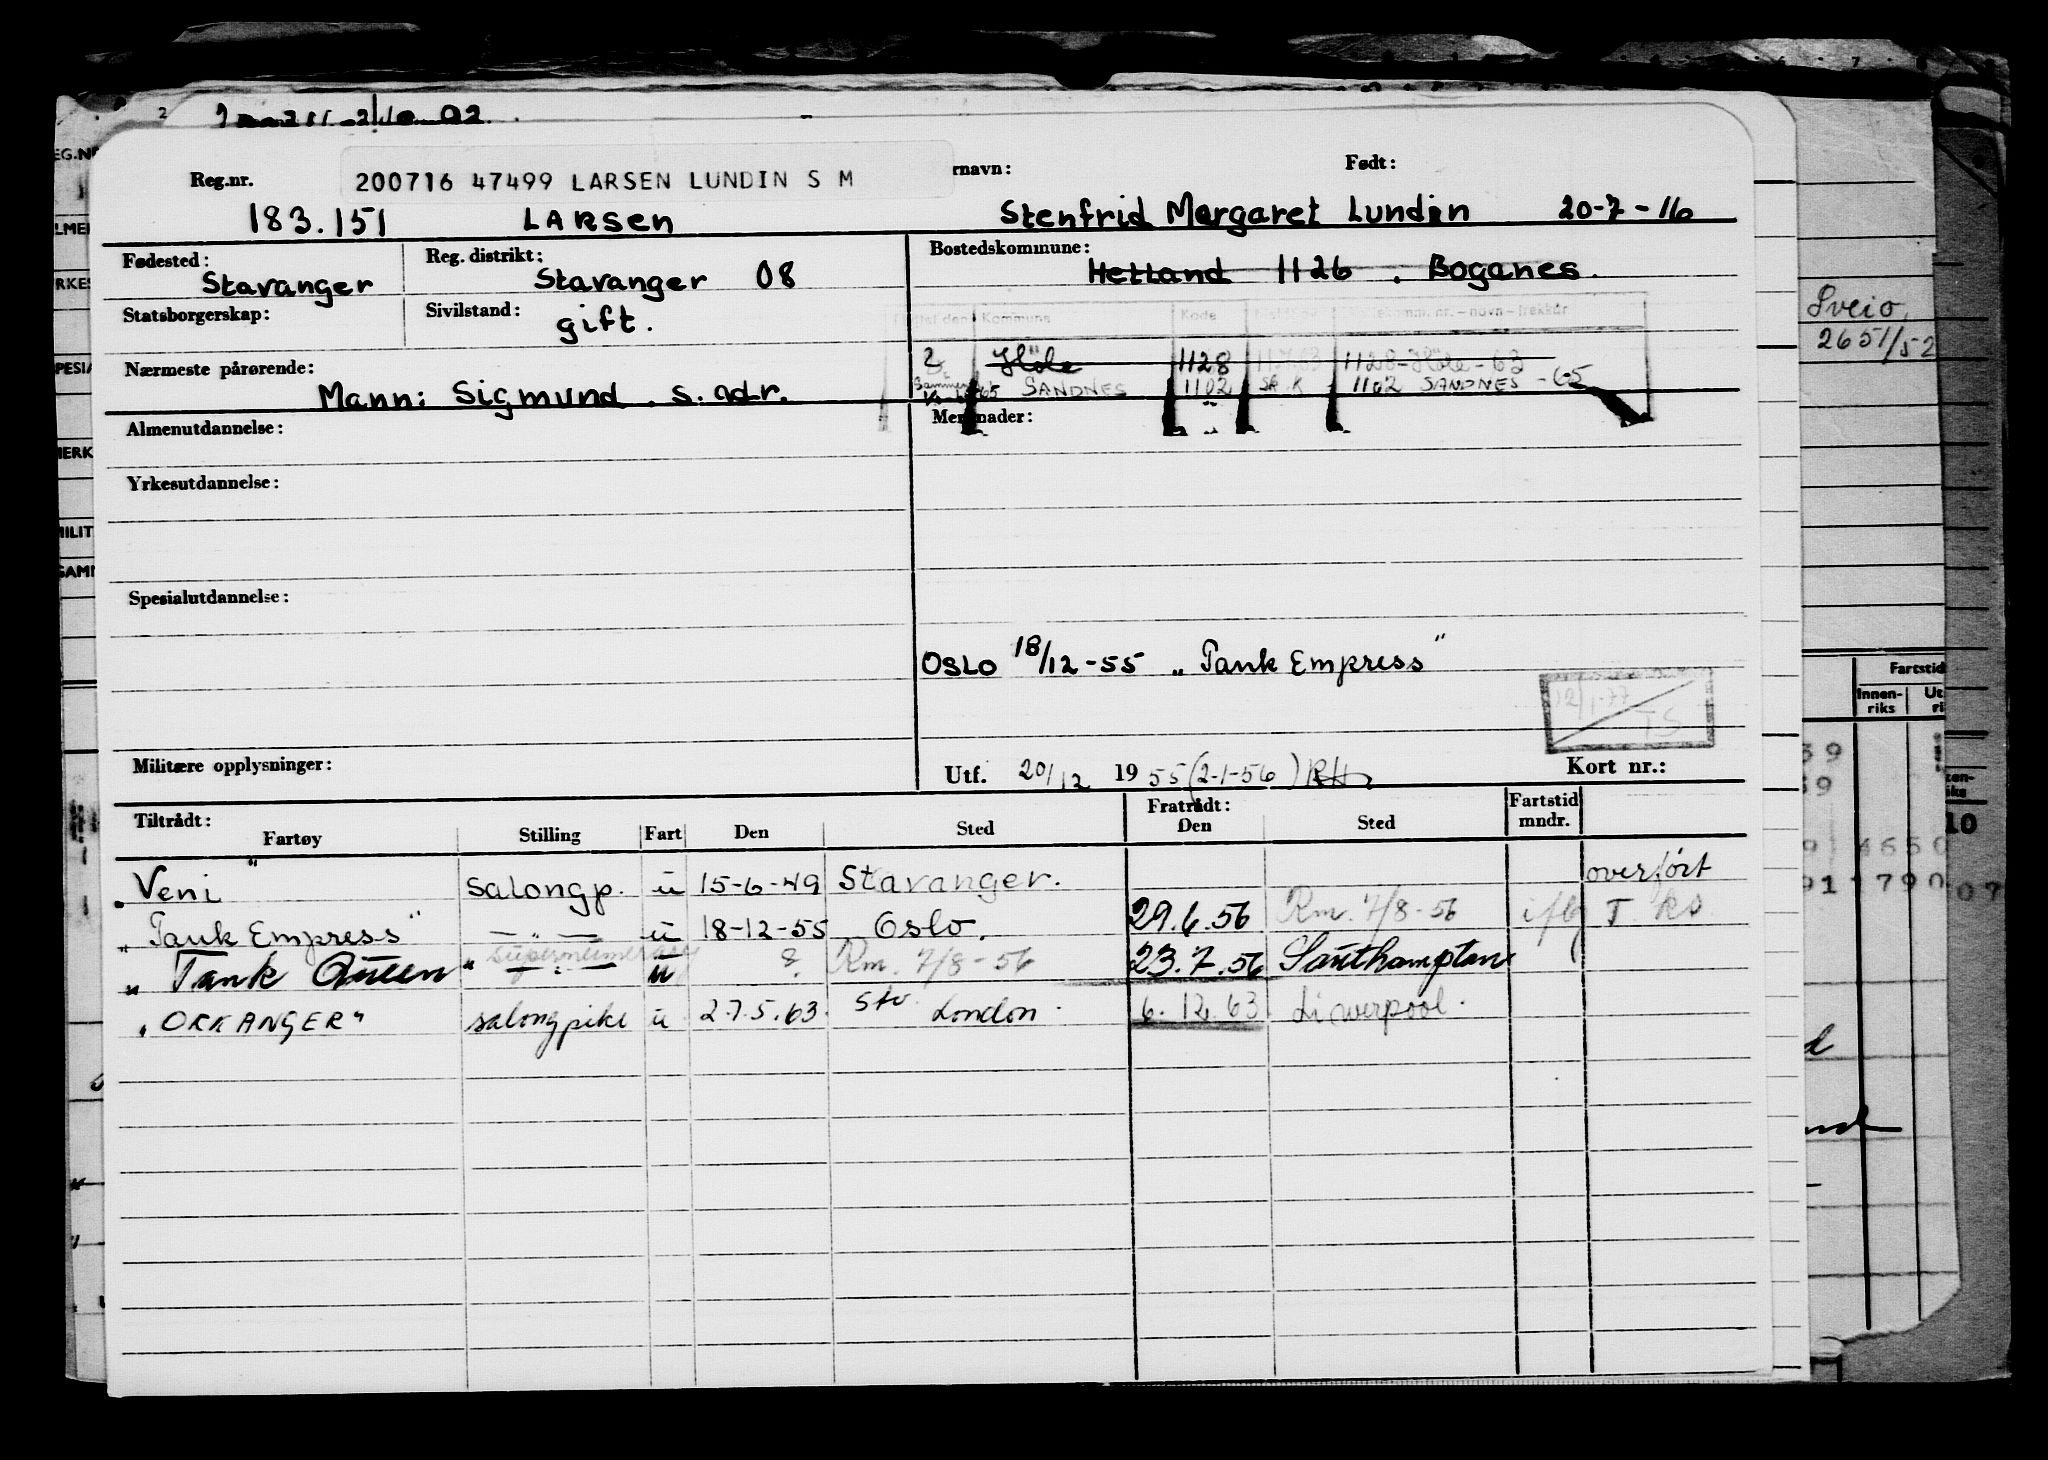 Reg.nr. 200716 47499 LARSEN LUNDIN S M rnavn: Født:
183.151 LARSEN Stenfrid Margaret Lundin 20-7-16
Fødested: Stavanger Reg. distrikt: Stavanger 08 Bostedskommune: Hetland 1126 . Boganes.
Statsborgerskap: Sivilstand: gift.
Kommune Kode
2 Höle 1128 1128-Höle-63
Nærmeste pårørende: Mann: Sigmund . s. adr.
65 SANDNES 1102 SR.K 1102 SANDNES -65
Almenutdannelse: Merknader:
Yrkesutdannelse:
Spesialutdannelse:
OSLO 18/12-55 „Tank Empress"
12/1-77
TS
Militære opplysninger: Utf. 20/12 1955 (2-1-56) Kort nr.:
Tiltrådt: Fratrådt: Fartstid
Fartøy Stilling Fart Den Sted Den Sted mndr.
„Veni" salongp. u 15-6-49 Stavanger. overført
„Tank Empress" —„— u 18-12-55 Oslo. 29.6.56 Rm. 7/8-56
„Tank Queen" supernumerary —„— u ? Rm. 7/8-56 23.7.56 Southampton
„ORKANGER" salongpike u 27.5.63. London. 6.12.63 Liverpool.
Sveio,
2651/52
Fartstid
Innen-
riks